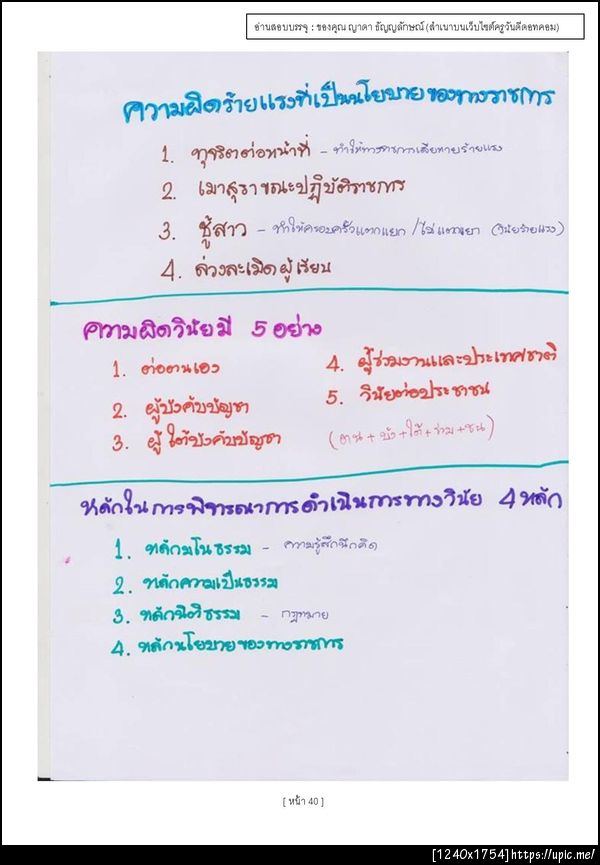 อ่านสอบบรรจุ : ของคุณ ญาดา ธัญญลักษณ์ (สำเนาบนเว็บไซต์ครูวันดีดอทคอม)
ความผิดร้ายแรงที่เป็นนโยบายของทางราชการ
1. ทุจริตต่อหน้าที่ - ทำให้ทางราชการเสียหายร้ายแรง
2. เมาสุราขณะปฏิบัติราชการ
3. ชู้สาว - ทำให้ครอบครัวแตกแยก / ไม่แตกแยก (วินัยร้ายแรง)
4. ล่วงละเมิดผู้เรียน
ความผิดวินัยมี 5 อย่าง
1. ต่อตนเอง
2. ผู้บังคับบัญชา
3. ผู้ใต้บังคับบัญชา
4. ผู้ร่วมงานและประเทศชาติ
5. วินัยต่อประชาชน
(ตน + บัง + ใต้ + ร่วม + ชน)
หลักในการพิจารณาการดำเนินการทางวินัย 4 หลัก
1. หลักมโนธรรม - ความรู้สึกนึกคิด
2. หลักความเป็นธรรม
3. หลักนิติธรรม - กฎหมาย
4. หลักนโยบายของทางราชการ
[ หน้า 40 ]
[1240x1754]https://upic.me/